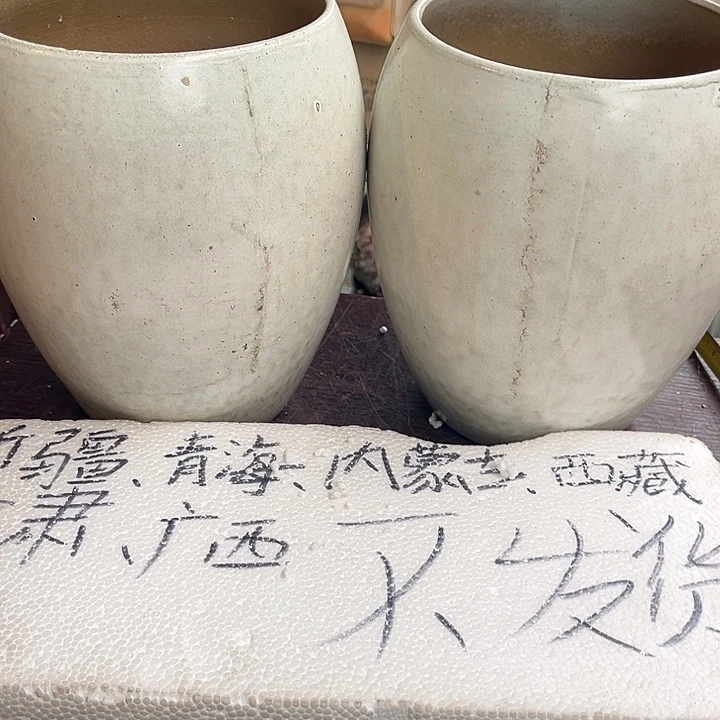 新疆、青海、内蒙古、西藏
肃、广西 不发货